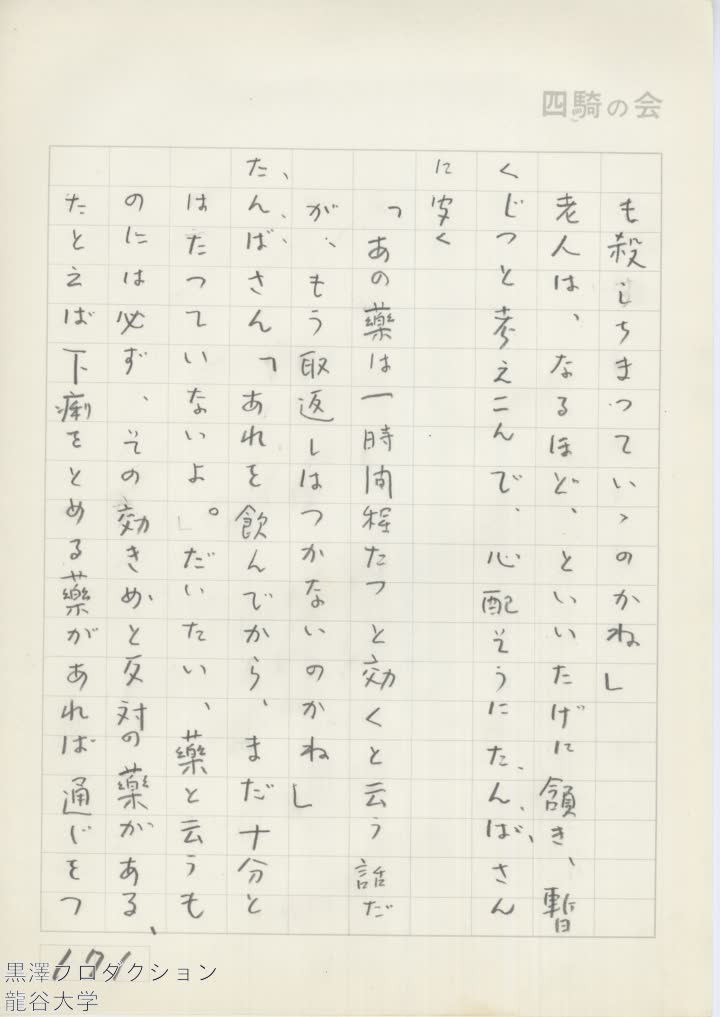 四騎の会
も殺しちまっていゝのかね」
老人は、なるほど、といいたげに頷き、暫
くじっと考えこんで、心配そうにたんばさん
に安く
「あの薬は一時間程たつと効くと云う話だ
が、もう取返しはつかないのかね」
たんばさん「あれを飲んでから、まだ十分と
はたっていないよ。」だいたい、薬と云うも
のには必ず、その効きめと反対の薬がある、
たとえば下痢をとめる薬があれば通じをつ
171
黒澤プロダクション
龍谷大学